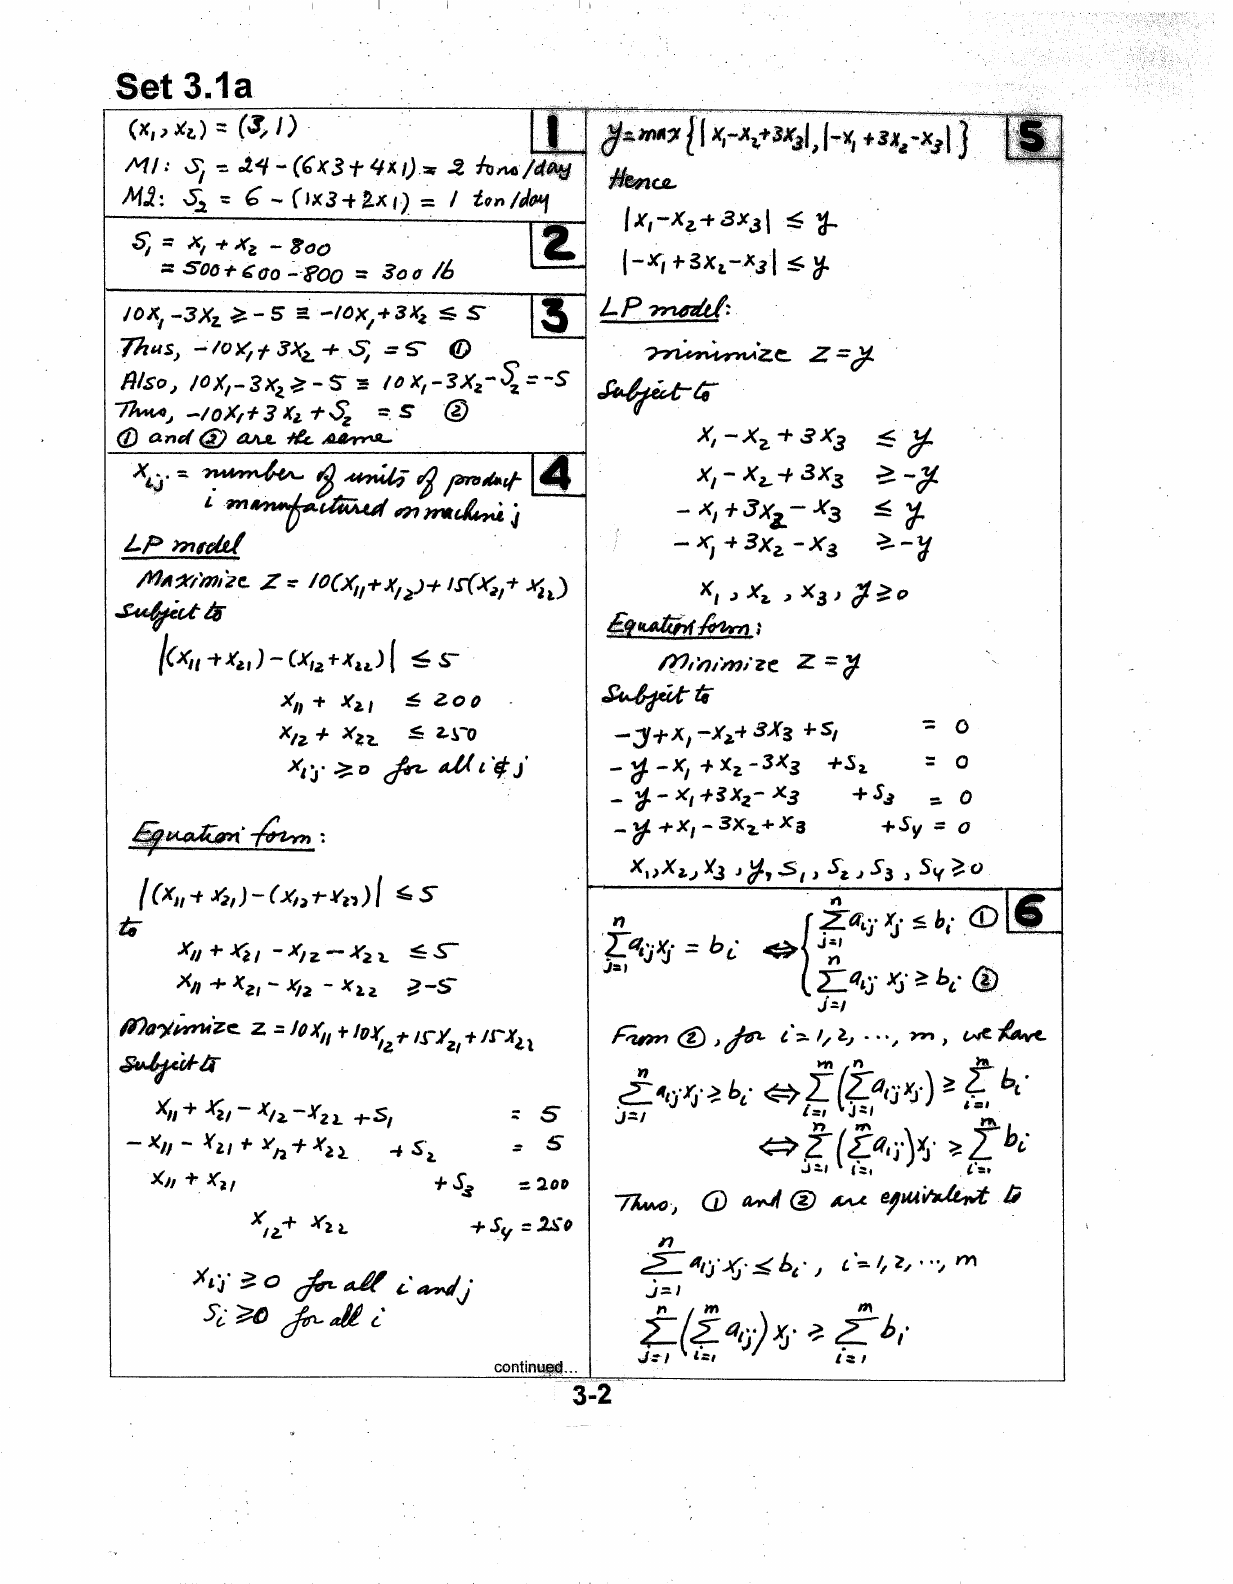 Set 3.1a
1
(x₁, x₂) = (3, 1)
M1: S₁ = 24 - (6x3 + 4x1) = 2 tons/day
M2: S₂ = 6 - (1x3 + 2x1) = 1 ton/day
2
S₁ = x₁ + x₂ - 800
= 500 + 600 - 800 = 300 lb
3
10x₁ - 3x₂ ≥ -5 ≡ -10x₁ + 3x₂ ≤ 5
Thus, -10x₁ + 3x₂ + S₁ = 5 ①
Also, 10x₁ - 3x₂ ≥ -5 ≡ 10x₁ - 3x₂ - S₂ = -5
Thus, -10x₁ + 3x₂ + S₂ = 5 ②
① and ② are the same
4
xᵢⱼ = number of units of product
i manufactured on machine j
LP model
Maximize Z = 10(x₁₁ + x₁₂) + 15(x₂₁ + x₂₂)
Subject to
|(x₁₁ + x₂₁) - (x₁₂ + x₂₂)| ≤ 5
x₁₁ + x₂₁ ≤ 200
x₁₂ + x₂₂ ≤ 250
xᵢⱼ ≥ 0 for all i & j
Equation form:
|(x₁₁ + x₂₁) - (x₁₂ + x₂₂)| ≤ 5
to
x₁₁ + x₂₁ - x₁₂ - x₂₂ ≤ 5
x₁₁ + x₂₁ - x₁₂ - x₂₂ ≥ -5
Maximize Z = 10x₁₁ + 10x₁₂ + 15x₂₁ + 15x₂₂
Subject to
x₁₁ + x₂₁ - x₁₂ - x₂₂ + S₁ = 5
-x₁₁ - x₂₁ + x₁₂ + x₂₂ + S₂ = 5
x₁₁ + x₂₁ + S₃ = 200
x₁₂ + x₂₂ + S₄ = 250
xᵢⱼ ≥ 0 for all i and j
Sᵢ ≥ 0 for all i
continued...
5
y = max {|x₁ - x₂ + 3x₃|, |-x₁ + 3x₂ - x₃|}
Hence
|x₁ - x₂ + 3x₃| ≤ y
|-x₁ + 3x₂ - x₃| ≤ y
LP model:
minimize Z = y
Subject to
x₁ - x₂ + 3x₃ ≤ y
x₁ - x₂ + 3x₃ ≥ -y
-x₁ + 3x₂ - x₃ ≤ y
-x₁ + 3x₂ - x₃ ≥ -y
x₁, x₂, x₃, y ≥ 0
Equation form:
Minimize Z = y
Subject to
-y + x₁ - x₂ + 3x₃ + S₁ = 0
-y - x₁ + x₂ - 3x₃ + S₂ = 0
-y - x₁ + 3x₂ - x₃ + S₃ = 0
-y + x₁ - 3x₂ + x₃ + S₄ = 0
x₁, x₂, x₃, y, S₁, S₂, S₃, S₄ ≥ 0
6
∑ⱼ₌₁ⁿ aᵢⱼxⱼ = bᵢ ⟺ { ∑ⱼ₌₁ⁿ aᵢⱼxⱼ ≤ bᵢ ①
∑ⱼ₌₁ⁿ aᵢⱼxⱼ ≥ bᵢ ②
From ②, for i = 1, 2, ..., m, we have
∑ⱼ₌₁ⁿ aᵢⱼxⱼ ≥ bᵢ ⟺ ∑ᵢ₌₁ᵐ (∑ⱼ₌₁ⁿ aᵢⱼxⱼ) ≥ ∑ᵢ₌₁ᵐ bᵢ
⟺ ∑ⱼ₌₁ⁿ (∑ᵢ₌₁ᵐ aᵢⱼ)xⱼ ≥ ∑ᵢ₌₁ᵐ bᵢ
Thus, ① and ② are equivalent to
∑ⱼ₌₁ⁿ aᵢⱼxⱼ ≤ bᵢ, i = 1, 2, ..., m
∑ⱼ₌₁ⁿ (∑ᵢ₌₁ᵐ aᵢⱼ) xⱼ ≥ ∑ᵢ₌₁ᵐ bᵢ
3-2